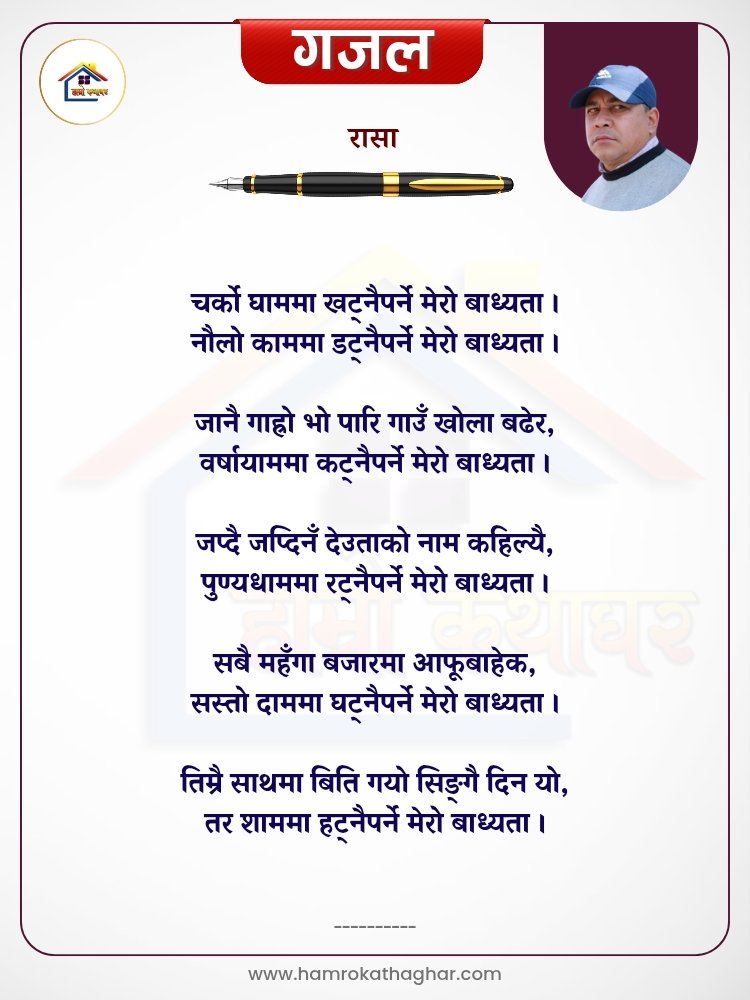 गजल
हाम्रो कथाघर
रासा
चर्को घाममा खट्नैपर्ने मेरो बाध्यता ।
नौलो काममा डट्नैपर्ने मेरो बाध्यता ।
जानै गाह्रो भो पारि गाउँ खोला बढेर,
वर्षायाममा कट्नैपर्ने मेरो बाध्यता ।
जप्दै जप्दिनँ देउताको नाम कहिल्यै,
पुण्यधाममा रट्नैपर्ने मेरो बाध्यता ।
हाम्रो कथाघर
सबै महँगा बजारमा आफूबाहेक,
सस्तो दाममा घट्नैपर्ने मेरो बाध्यता ।
तिम्रै साथमा बिति गयो सिङ्गै दिन यो,
तर शाममा हट्नैपर्ने मेरो बाध्यता ।
----------
www.hamrokathaghar.com